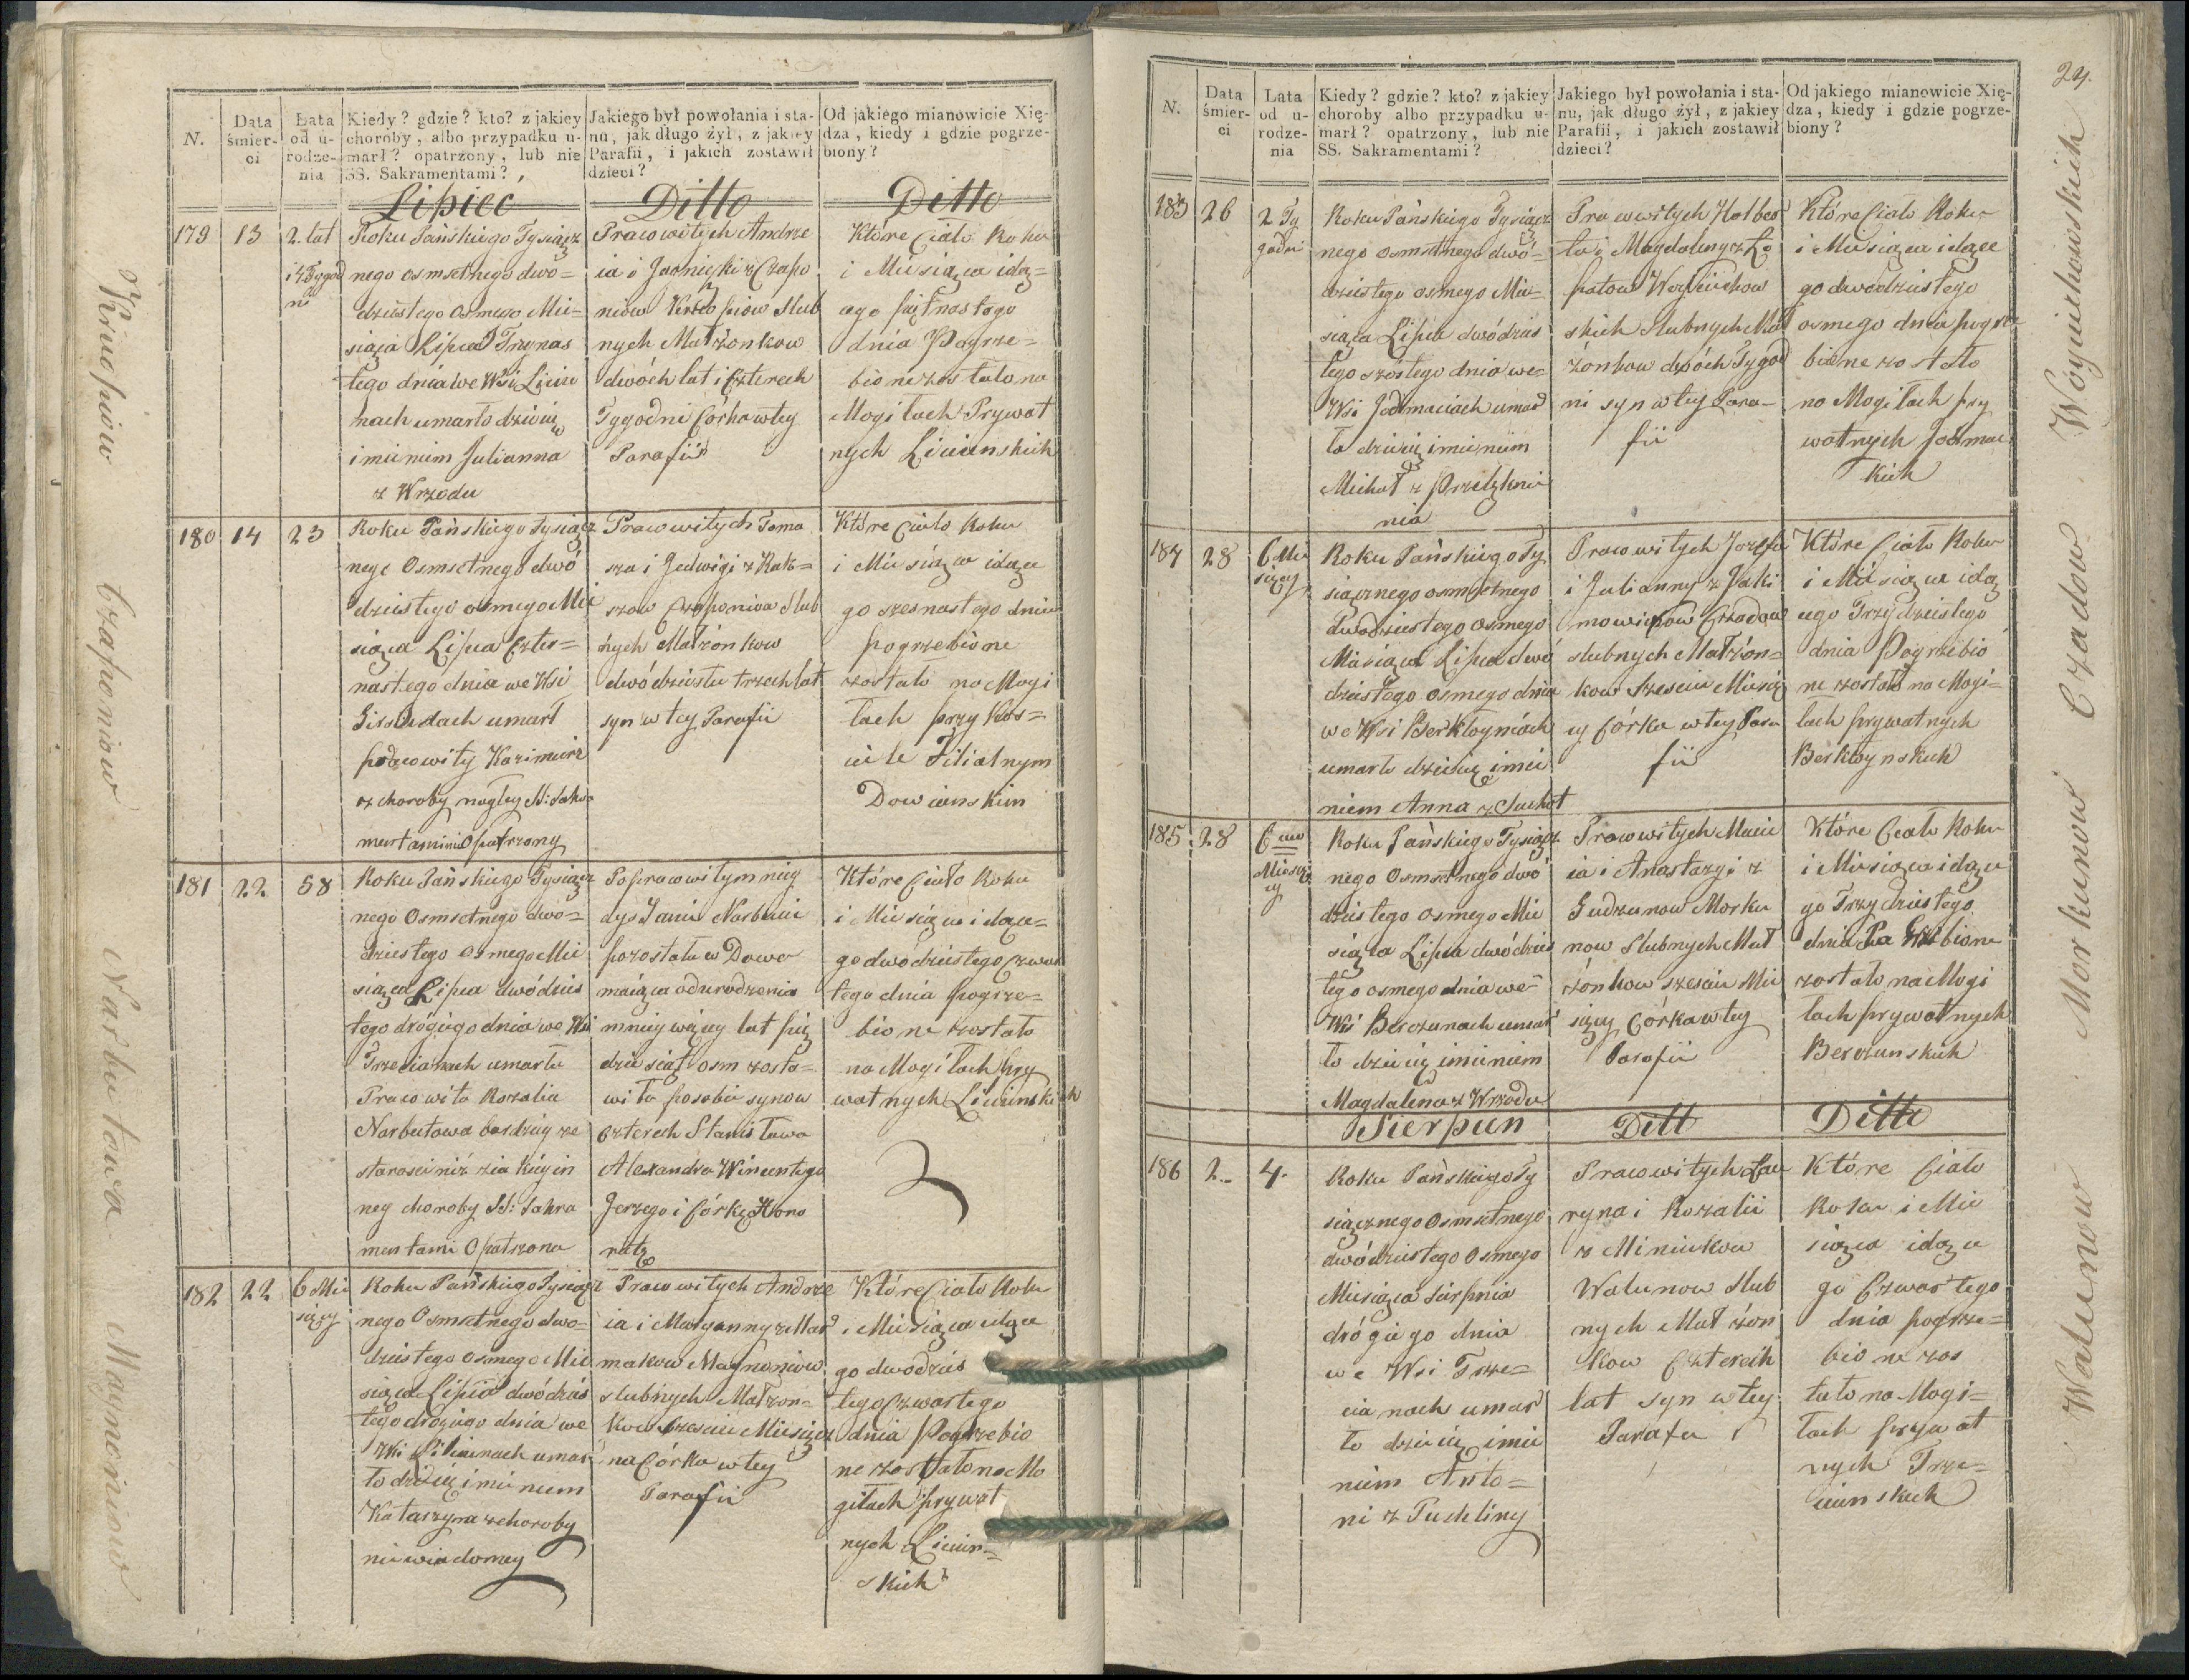 N.
Data śmier- ci
Łata od u- rodze- nia
Kiedy? gdzie? kto? z jakiey choroby, albo przypadku u- marł? opatrzony, lub nie SS. Sakramentami?
Jakiego był powołania i sta- nu, jak długo żył, z jakiey Parafii, i jakich zostawił dzieci?
Od jakiego mianowicie Xię- dza, kiedy i gdzie pogrze- biony?
Lipiec
Ditto
Ditto
179
13
2. lat
i 4 Tygod
ni
Roku Pańskiego Tysiącz
nego osmsetnego dwo=
dziestego osmego Mie=
siąca Lipca Trzynas
tego dnia we Wsi Liciu
nach umarło dziecie
imieniem Julianna
z Wrzodu
Pracowitych Andrze
ia i
niow Slub
nych Małżonkow
dwóch lat i czterech
Tygodni Córka w tey
Parafii
Które Ciało Roku
i Miesiąca idą=
cego piętnastego
dnia Pogrze=
bione zostało na
Mogiłach Prywat
nych Liciunskich
180
14
23
Roku Pańskiego Tysiącz
nego Osmsetnego dwó
dziestego osmego Mie
siąca Lipca czter=
nastego dnia we Wsi
umarł
pracowity Kazimierz
z choroby nagłey SS: Sakra
mentami nie Opatrzony
Pracowitych Toma
sza i Jedwigi z Rak=
szow Czaponiow Slub
nych Małżonkow
dwódziestu trzech lat
syn w tey Parafii
Które Ciało Roku
i Miesiąca idące
go szesnastego dnia
pogrzebione
zostało na Mogi
łach przy Koś=
ciele Filialnym
Dowianskim
181
22
58
Roku Pańskiego Tysiącz
nego Osmsetnego dwo=
dziestego osmego Mie
siąca Lipca dwódzies
tego drógiego dnia we Wsi
Trzecianach umarła
Pracowita Rozalia
Narbutowa bardziey ze
starosci niż z iakiey in
ney choroby SS: Sakra
mentami Opatrzona
Po pracowitym nieg
dys Janie Narbucie
pozostała w Dowa
maiąca od urodzenia
mniey więcey lat pię
dziesiąt osm zosta=
wiła po sobie synow
czterech Stanisława
Alexandra Wincentego
Jerzego i córkę Hono
ratę
Które Ciało Roku
i Miesiąca idące=
go dwodziestego czwar
tego dnia pogrze=
bione zostało
na Mogiłach pry
watnych Liciunskich
182
22
6 Mie
sięcy
Roku Pańskiego Tysiącz
nego Osmsetnego dwo=
dziestego osmego Mie
siąca Lipca dwódzies
tego drógiego dnia we
Wsi Liciunach umar
ło dziecie imieniem
Katarzyna z choroby
niewiadomey
Pracowitych Andrze
ia i Maryanny z Mar
makow Maynoniow
slubnych Małżon=
kow szesciu Miesięcz
na Córka w tey
Parafii
Które Ciało Roku
i Miesiąca idące
go dwodzies
tego Czwartego
dnia Pogrzebio
ne zostało na Mo
giłach prywat
nych Liciun=
skich
Czaponiow
Narbutowa
Maynoniow
24.
N.
Data śmier- ci
Lata od u- rodze- nia
Kiedy? gdzie? kto? z jakiey choroby albo przypadku u- marł? opatrzony, lub nie SS. Sakramentami?
Jakiego był powołania i sta- nu, jak długo żył, z jakiey Parafii, i jakich zostawił dzieci?
Od jakiego mianowicie Xię- dza, kiedy i gdzie pogrze- biony?
183
26
2 Ty
godni
Roku Pańskiego Tysiącz
nego osmsetnego dwó=
dziestego osmego Mie=
siąca Lipca dwódzies
tego szóstego dnia we=
Wsi Jodmaciach umar
ło dziecie imieniem
Michał z Przelęknie
nia
Pracowitych
i Magdaleny z Ło
patow
skich slubnych Mał
żonkow dwóch Tygod
ni syn w tey Para=
fii
Które Ciało Roku
i Miesiąca idące
go dwodziestego
osmego dnia pogrze
bione zostało
na Mogiłach pry
watnych Jodmac
kich
184
28
6 Mie
sięcy
Roku Pańskiego Ty
siącznego osmsetnego
dwodziestego osmego
Miesiąca Lipca dwó
dziestego osmego dnia
we Wsi Berkłoyniach
umarło dziecie imie
niem Anna z Suchot
Pracowitych Jozefa
i Julianny z Jaki
mowiczow Czadow
slubnych Małżon=
kow Szesciu Miesię
cy Córka w tey Para
fii
Które Ciało Roku
i Miesiąca idą
cego Trzydziestego
dnia Pogrzebio
ne zostało na Mogi=
łach prywatnych
Berkłoynskich
185
28
6
Miesię
cy
Roku Pańskiego Tysiącz
nego Osmsetnego dwó
dziestego osmego Mie
siąca Lipca dwódzies
tego osmego dnia we=
Wsi Berzunach umar
ło dziecie imieniem
Magdalena z Wrzodu
Pracowitych Macie
ia i Anastazyi z
Gudzunow Morku
now Slubnych Mał
żónkow szesciu Mie
sięcy Córka w tey
Parafii
Które Ciało Roku
i Miesiąca idące
go Trzydziestego
dnia Pogrzebione
zostało na Mogi
łach prywatnych
Berzunskich
Sierpień
Ditt
Ditto
186
2.
4.
Roku Pańskiego Ty
siącznego Osmsetnego
dwódziestego Osmego
Miesiąca Sierpnia
drógiego dnia
we Wsi Trze=
cianach umar
ło dziecie imie
niem Anto=
ni z Puchliny
Pracowitych Law
ryna i Rozalii
z Miniukow
Walunow Slub
nych Małżón
kow Czterech
lat syn w tey
Parafii
Które Ciało
Roku i Mie
siąca idące
go Czwartego
dnia pogrze=
bione zos
tało na Mogi=
łach prywat
nych Trze=
ciunskich
Woyciechowskich
Czadow
Morkunow
Walunow